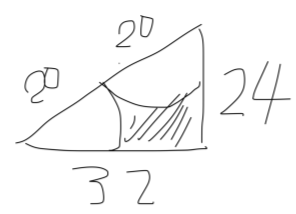 20
20
24
32